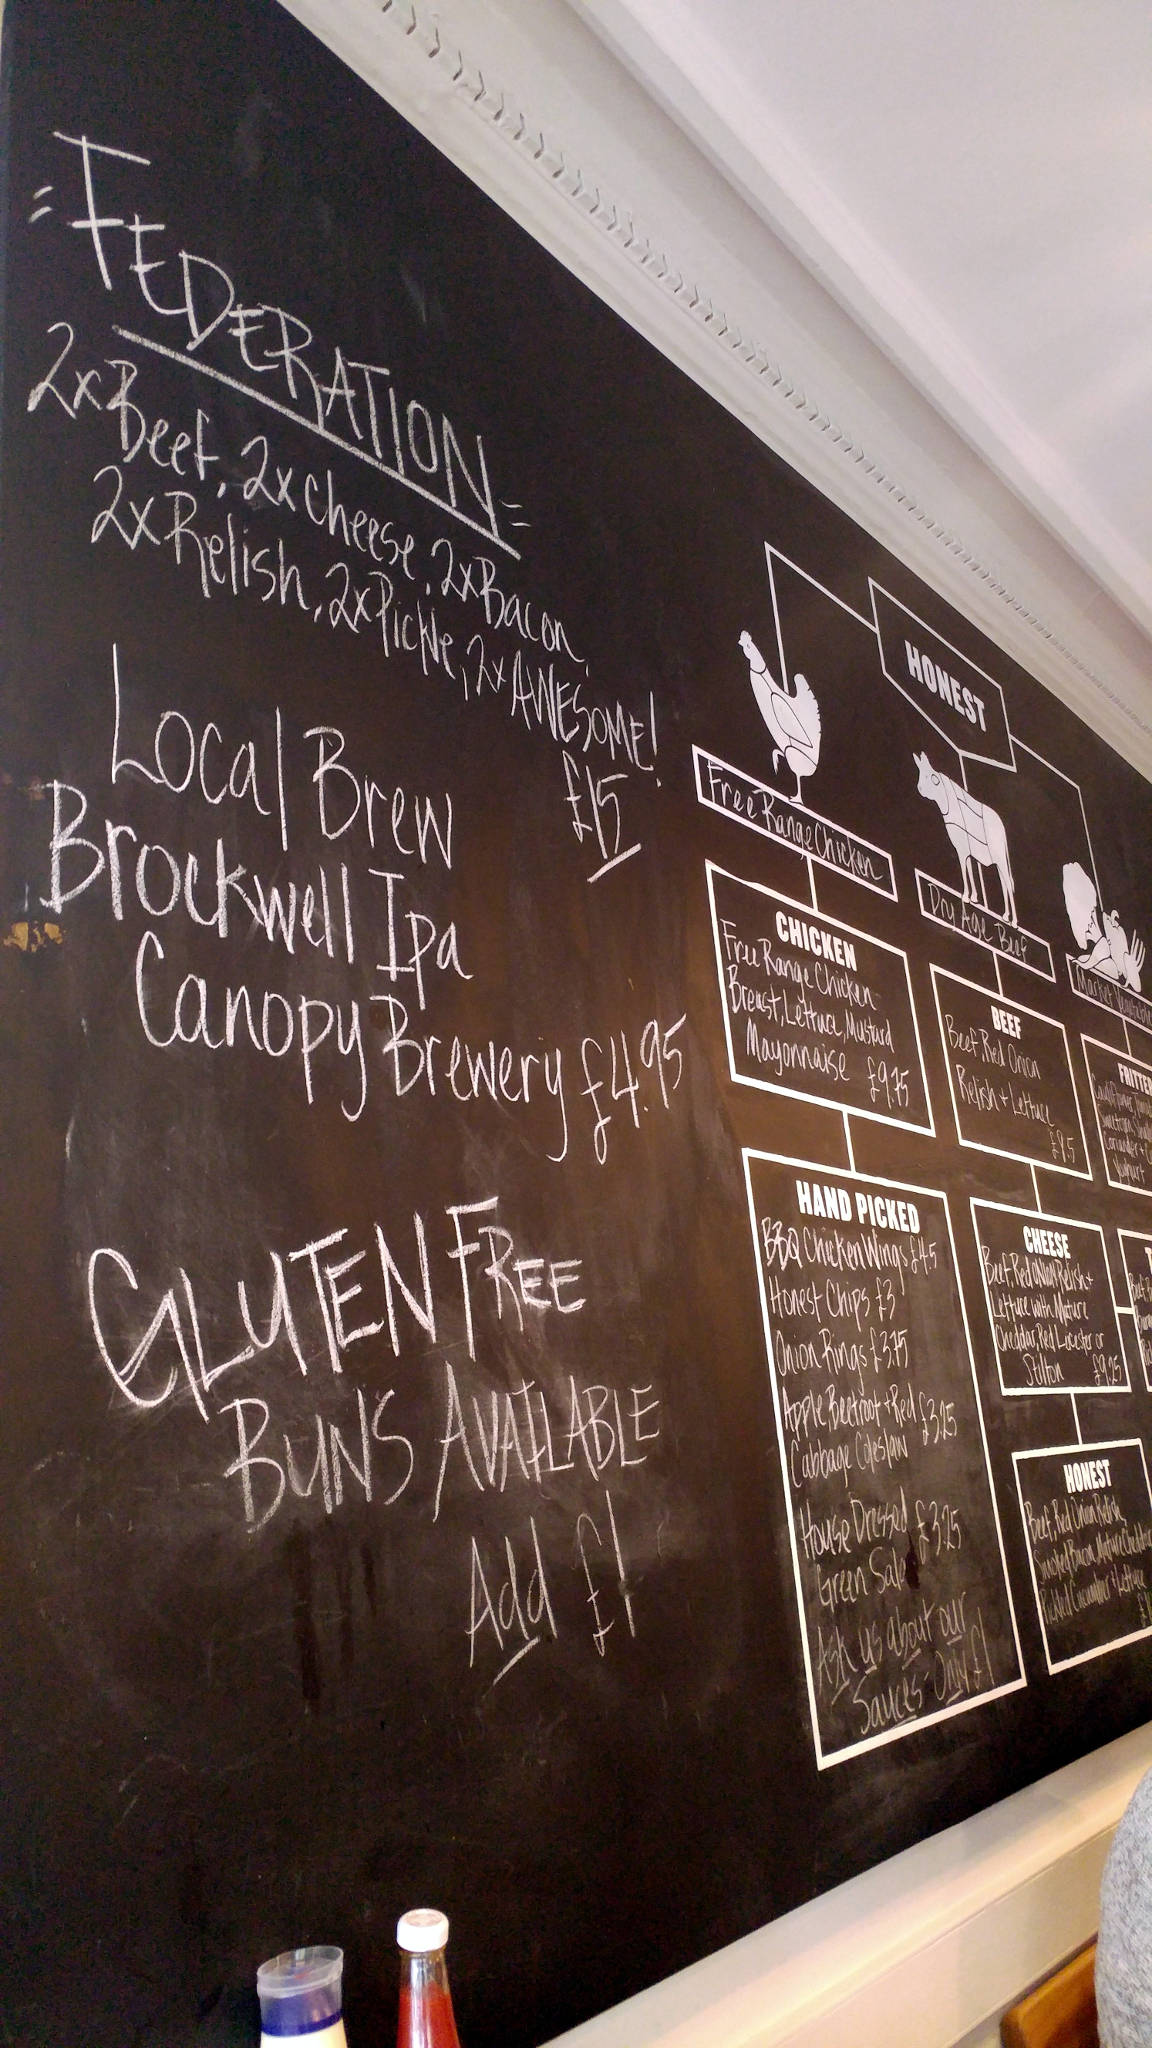 =FEDERATION=
2xBeef, 2xCheese, 2xBacon,
2xRelish, 2xPickle, 2xAWESOME!
£15
Local Brew
Brockwell Ipa
Canopy Brewery £4.95
GLUTEN FREE
BUNS AVAILABLE
Add £1
HONEST
Free Range Chicken
CHICKEN
Free Range Chicken
Breast, Lettuce, Mustard
Mayonnaise £9.75
HAND PICKED
BBQ Chicken Wings £4.5
Honest Chips £3
Onion Rings £3.75
Apple Beetroot + Red £3.25
Cabbage Coleslaw
House Dressed £3.25
Green Salad
Ask us about our
Sauces - Only £1
Dry Age Beef
BEEF
Beef, Red Onion
Relish + Lettuce
£9.5
CHEESE
Beef, Red Onion Relish +
Lettuce with Mature
Cheddar, Red Leicester or
Stilton £9.25
HONEST
Beef, Red Onion Relish,
Smoked Bacon, Mature Cheddar
Pickled Cucumber + Lettuce
Market Vegetable
FRITTE
Coriander +
Yoghurt